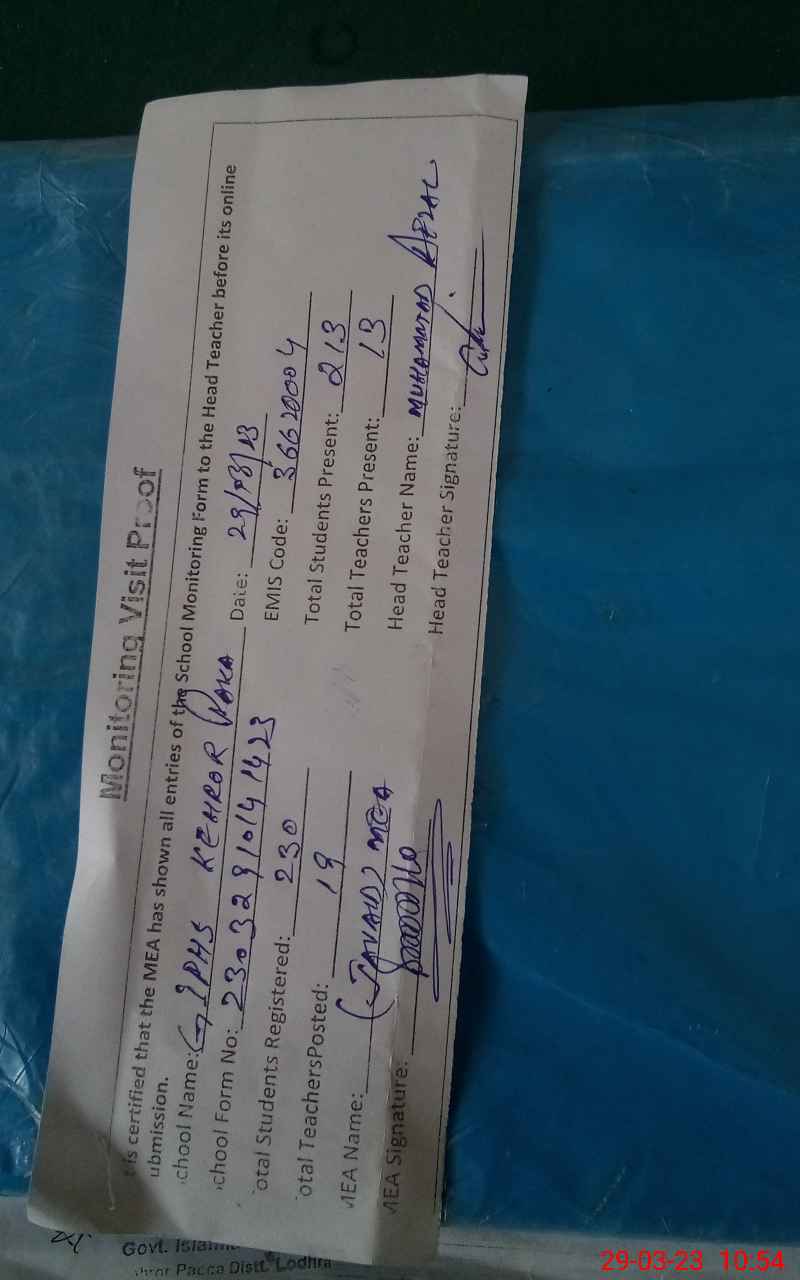 Monitoring Visit Proof
t is certified that the MEA has shown all entries of the School Monitoring Form to the Head Teacher before its online
ubmission.
chool Name: GIPHS KEHROR PAKA Date: 29/03/23
chool Form No: 23032910141423 EMIS Code: 36620004
otal Students Registered: 230 Total Students Present: 213
otal TeachersPosted: 19 Total Teachers Present: 13
MEA Name: (JAVAID) MEA Head Teacher Name: MUHAMMAD AFZAL
MEA Signature: Head Teacher Signature:
Govt. Islam
hror Pacca Distt. Lodhra
29-03-23 10:54